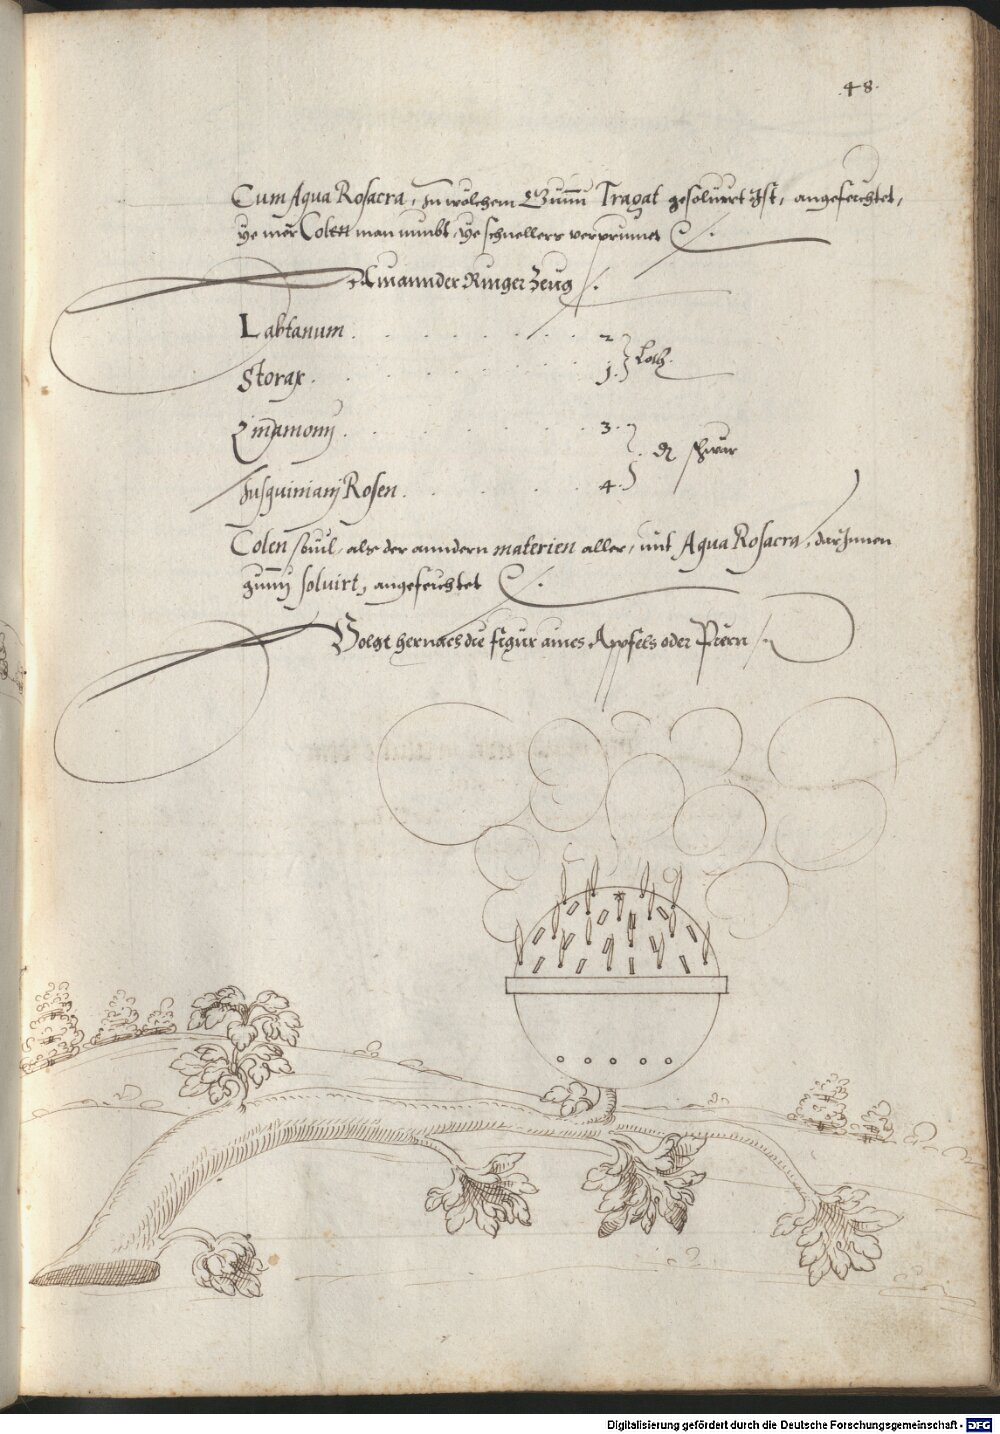 .48.
Cum Aqua Rosacra, In wölchem Gummi Tragat gesoluirt Ist, angefeichtet,
ye mer Colen man nimbt, ye schnellers verprinnet
Ain annder Ringer Zeug
Labtanum . . . . . . 2 } Loth.
Storax . . . . . . 1 }
Zinamomj . . . . . . 3 }
Jusquiniamj Rosen . . . . . 4 }
Colen souil, als der anndern materien aller, mit Aqua Rosacra, dar Innen
gummj soluirt, angefeichtet
Volgt hernach die figur aines Apfels oder Piern
Digitalisierung gefördert durch die Deutsche Forschungsgemeinschaft - DFG